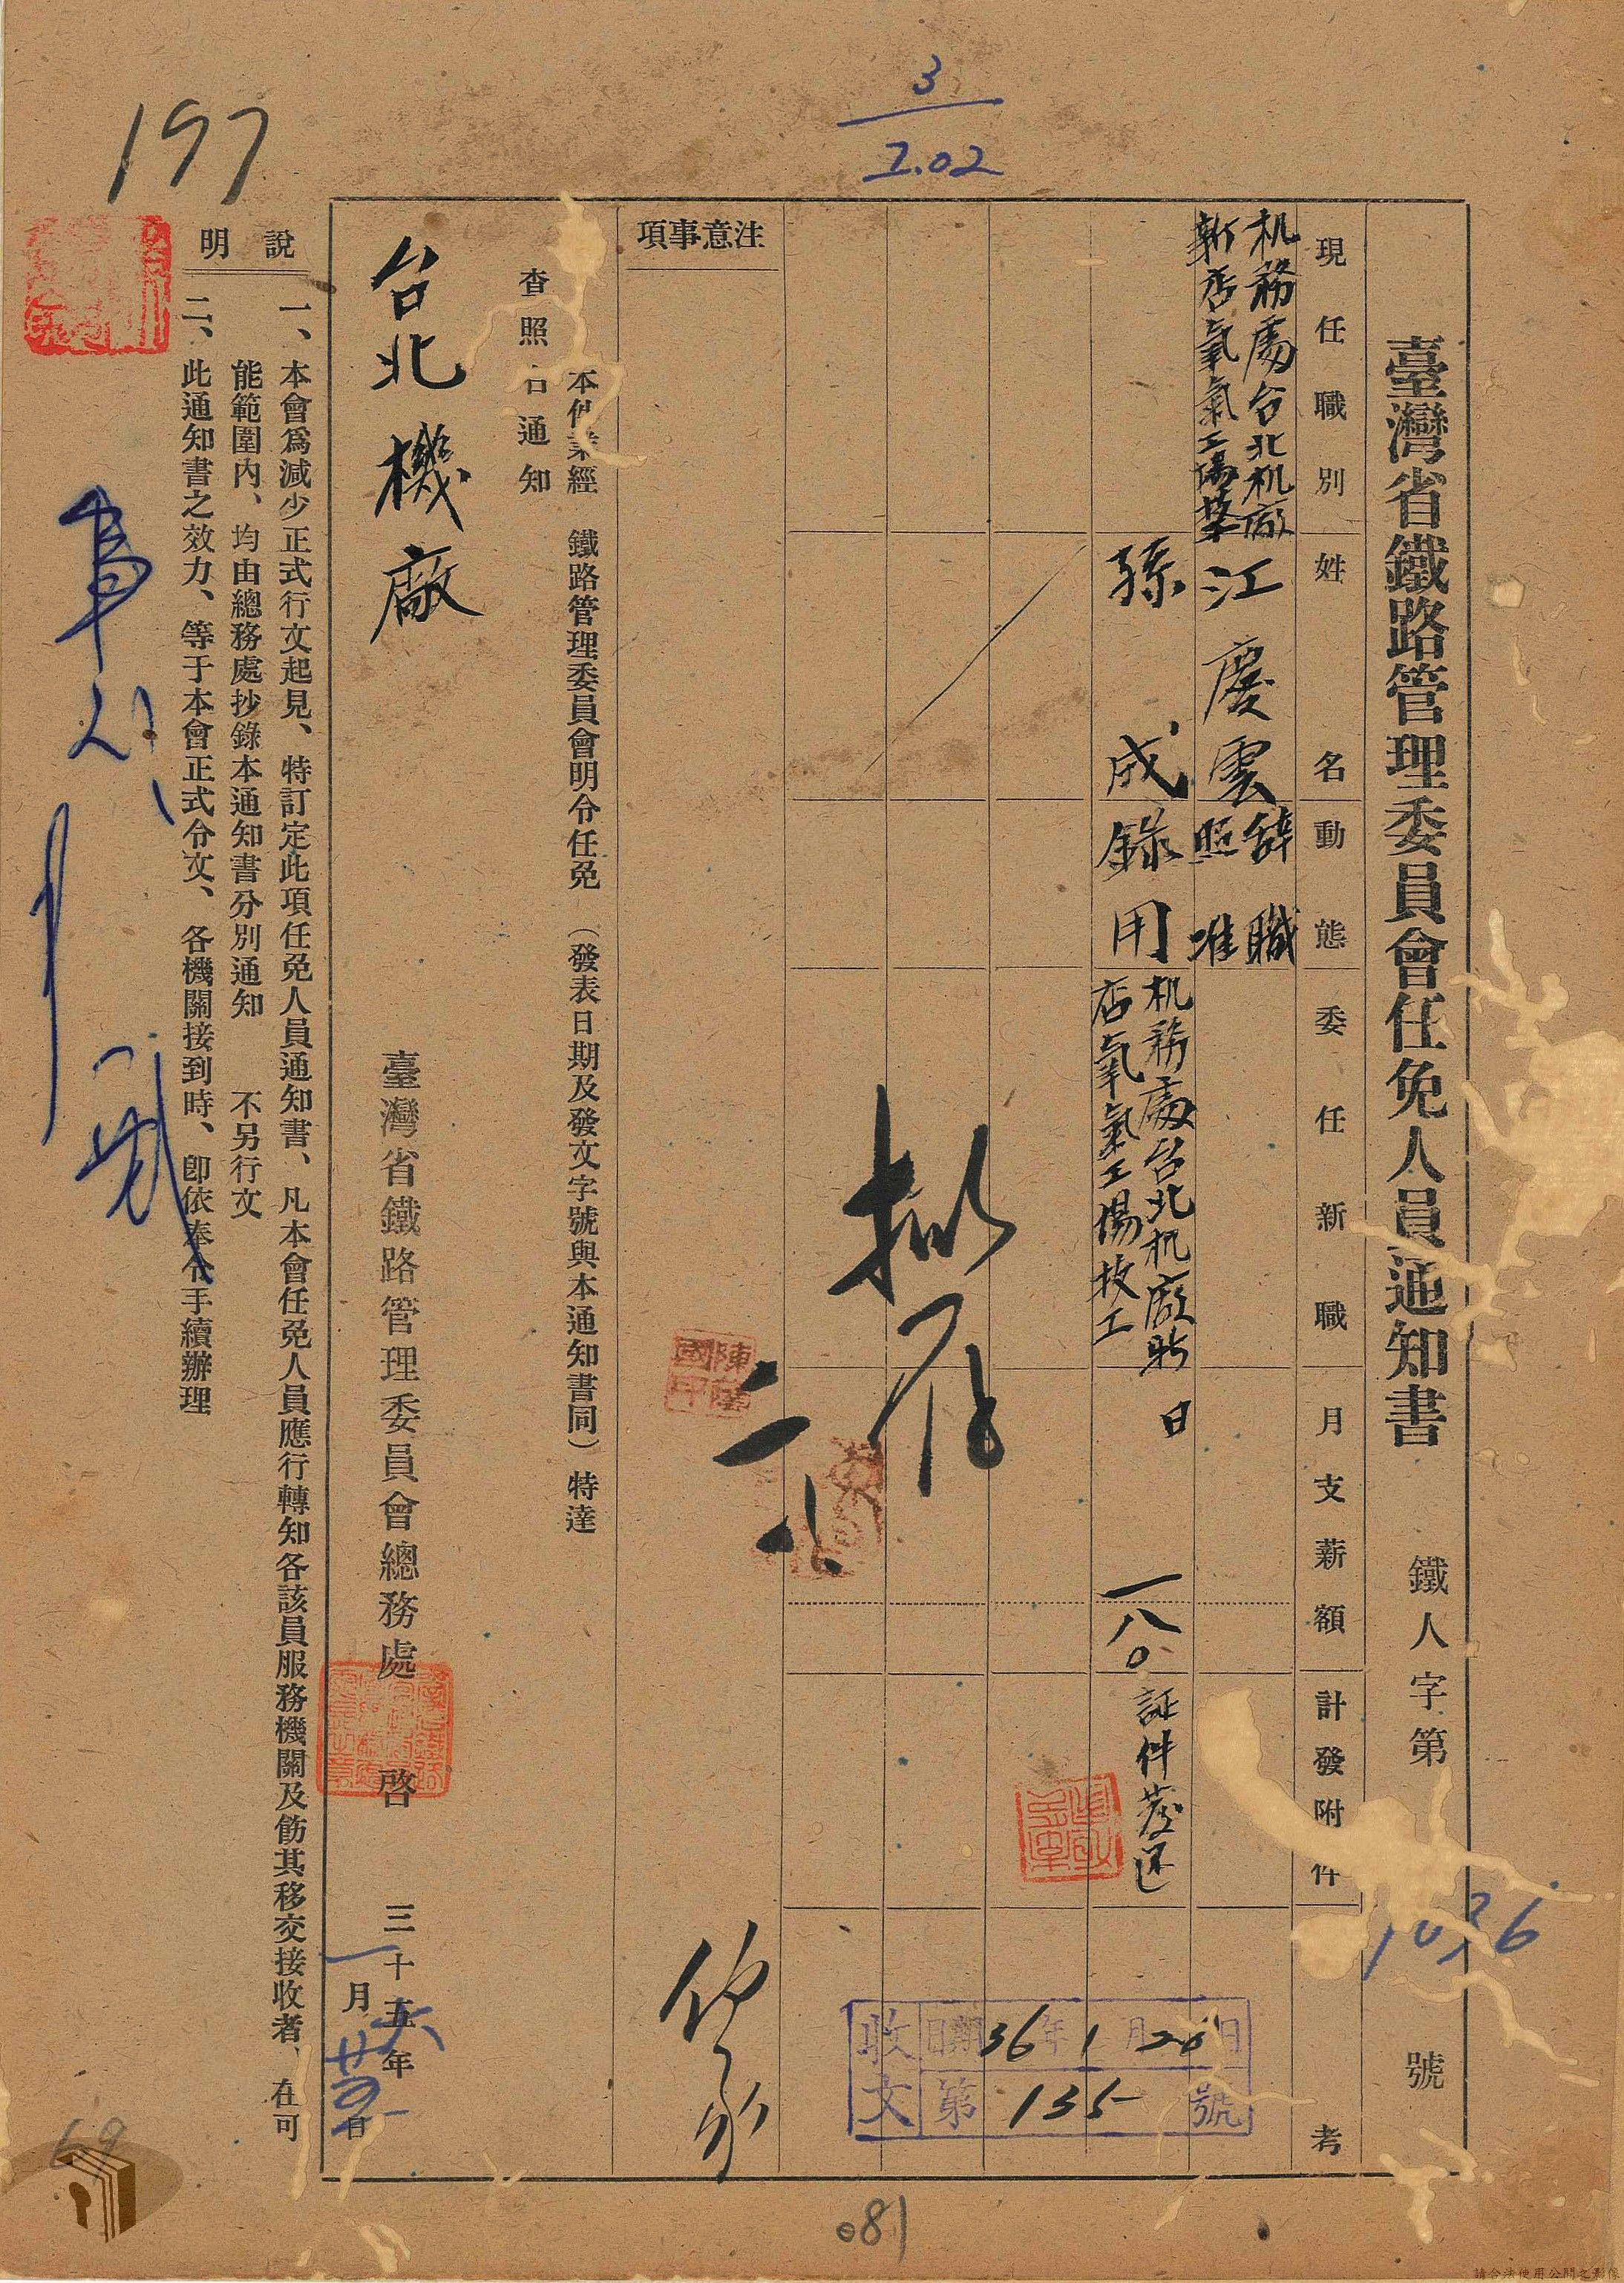 臺灣省鐵路管理委員會任免人員通知書
鐵人字第
號
現任職別
姓名
動態
委任新職
月支薪額
計發附件
考
机務處台北机廠
新店氧氣工場
江慶雲
辭職
照准
孫成
錄用
机務處台北机廠新
店氧氣工場技工
日
一八〇
証件發還
3
7.02
收文
日期36年1月20日
第135號
注意事項
本件業經 鐵路管理委員會明令任免（發表日期及發文字號與本通知書同）特達
查照
通知
台北機廠
臺灣省鐵路管理委員會總務處 啓
三十五年
六
一月
日
說明
一、本會爲減少正式行文起見、特訂定此項任免人員通知書、凡本會任免人員應行轉知各該員服務機關及飭其移交接收者、在可
能範圍內、均由總務處抄錄本通知書分別通知 不另行文
二、此通知書之效力、等于本會正式令文、各機關接到時、卽依奉令手續辦理
197
69
081
請合法使用公開之影像